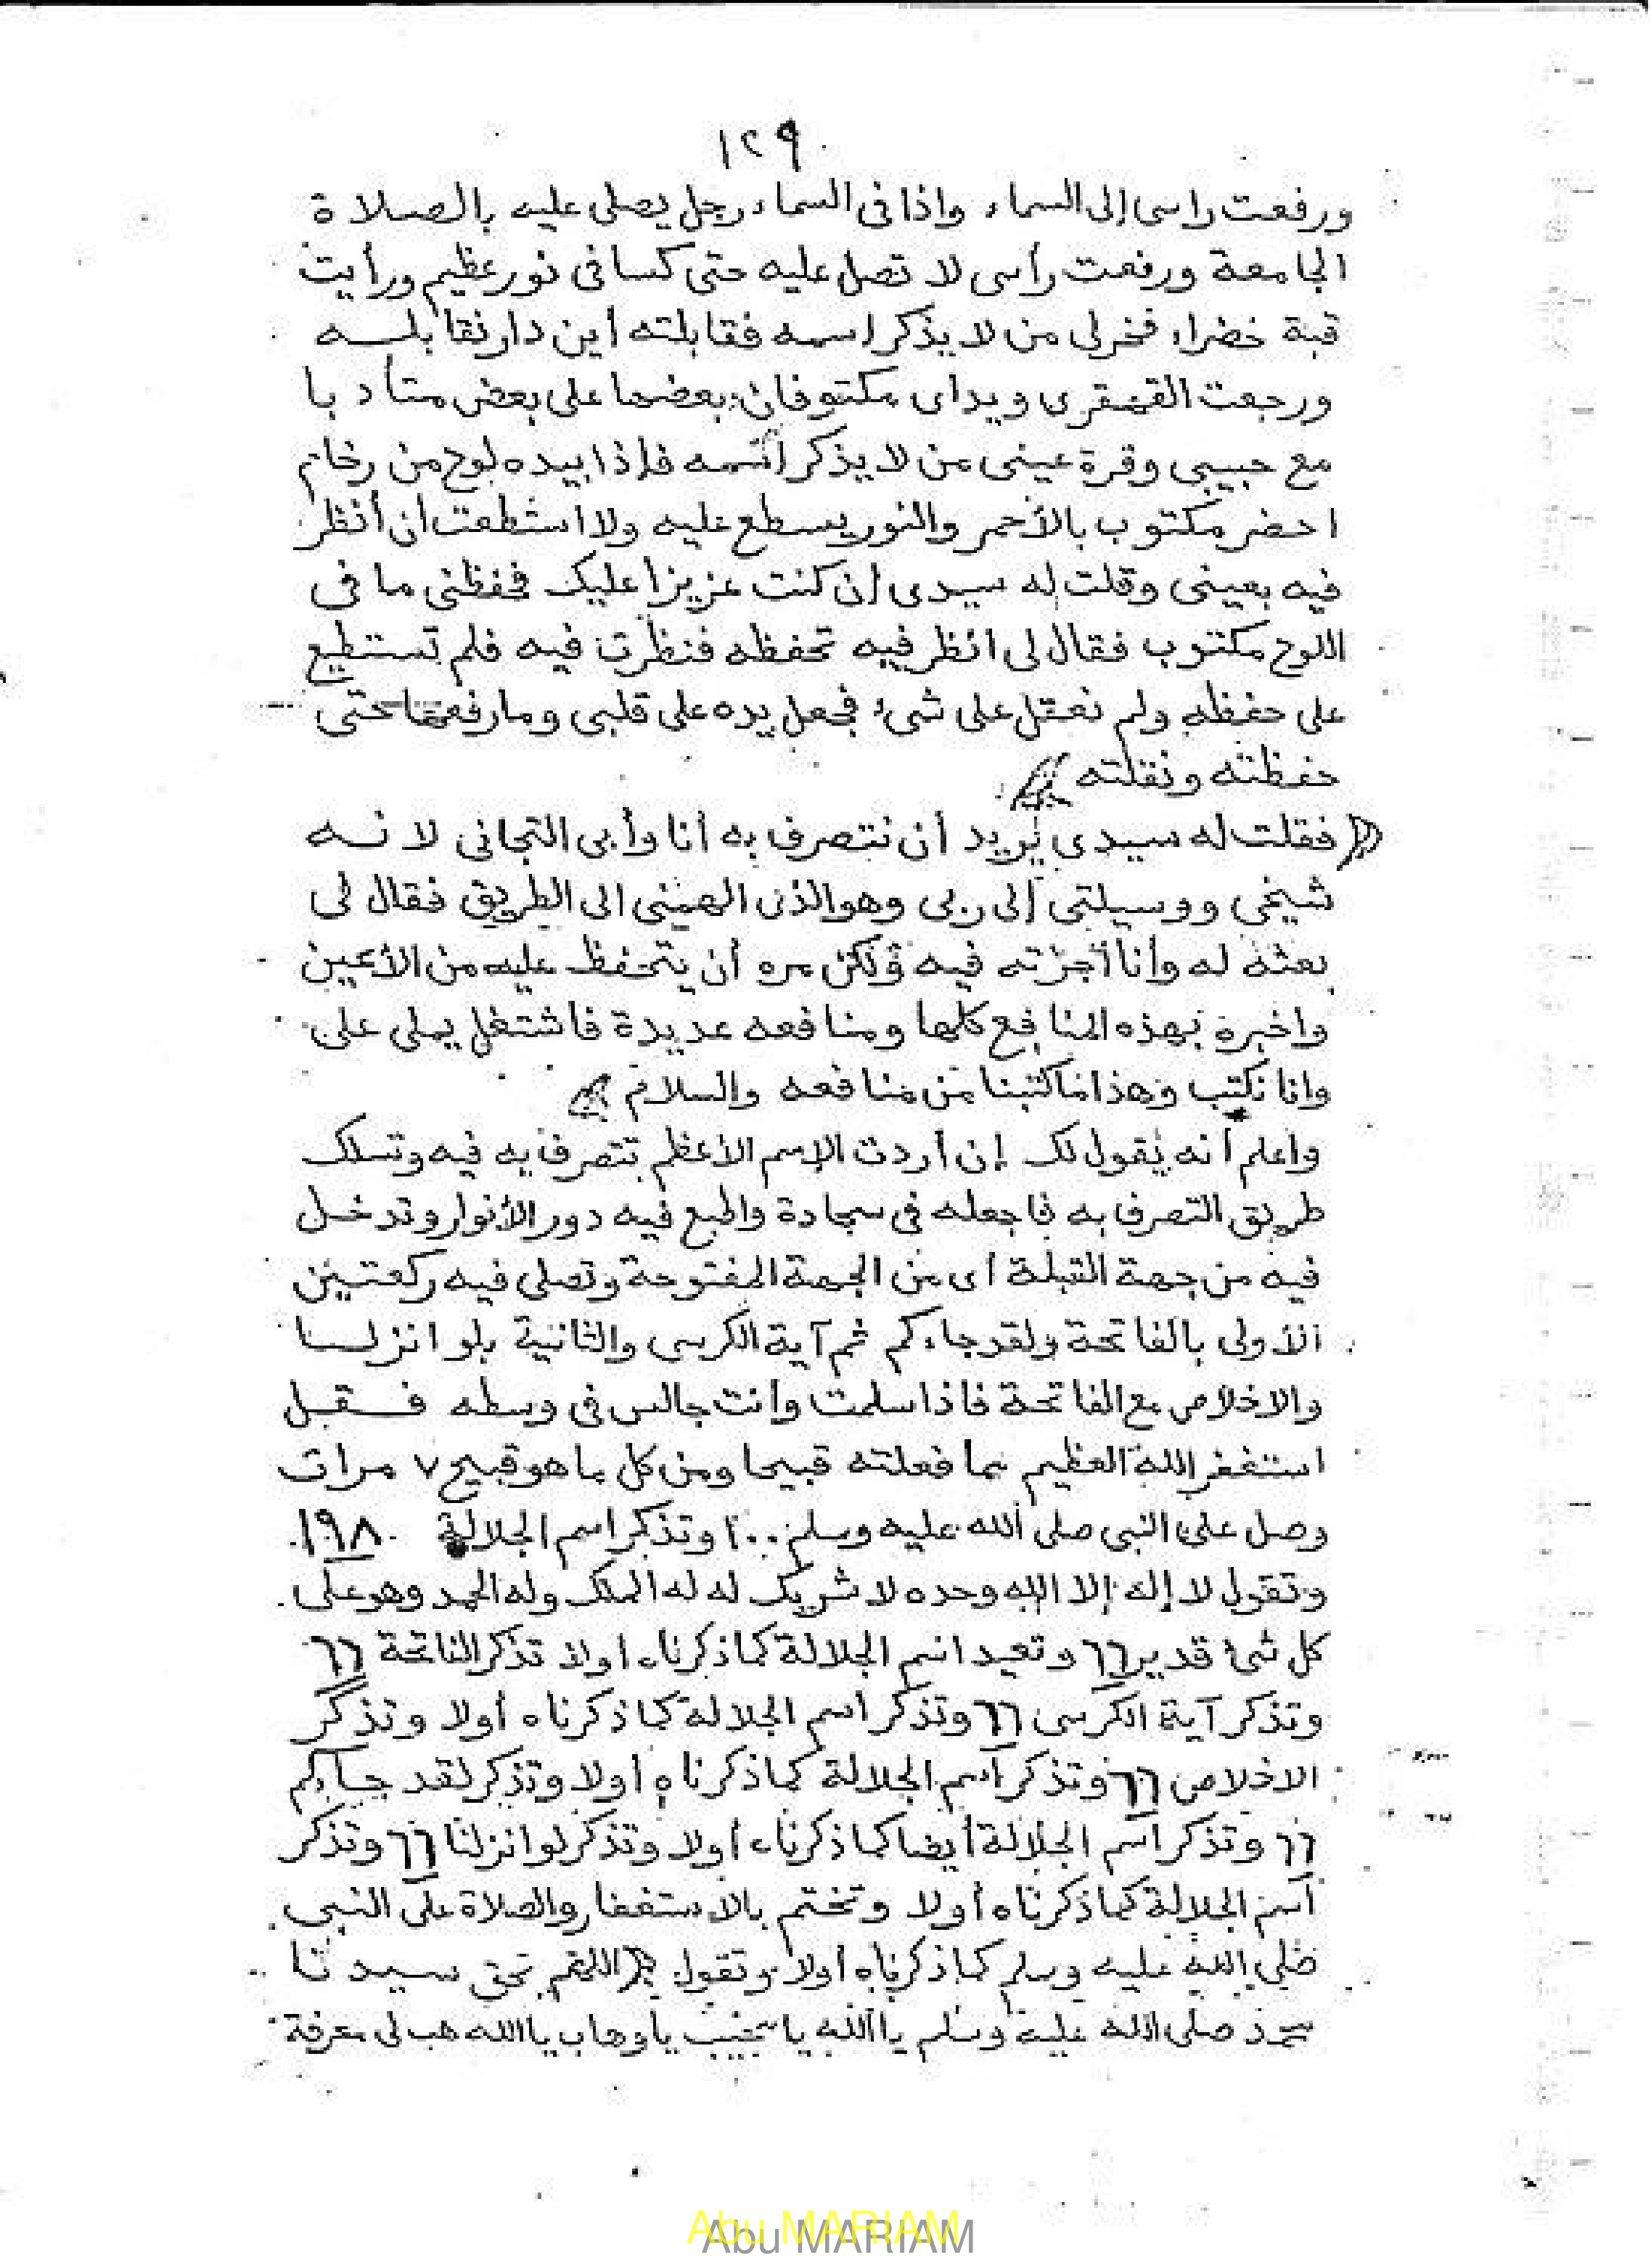 ١٢٩
ورفعت راسى إلى السماء واذا فى السماء رجل يصلى عليه بالصلاة
الجامعة ورفعت رأسى لا تصل عليه حتى كسانى نور عظيم ورأيت
قبة خضراء فخرلى من لا يذكر اسمه فقابلته أين دار نقابلــه
ورجعت القهقرى ويداى مكتوفان بعضها على بعض متأدبا
مع حبيبى وقرة عينى من لا يذكر اسمه فإذا بيده لوح من رخام
اخضر مكتوب بالأحمر والنور يسطع عليه ولا استطعت ان أنظر
فيه بعينى وقلت له سيدى إن كنت عزيزا عليك فحفظنى ما فى
اللوح مكتوب فقال لى انظر فيه تحفظه فنظرت فيه فلم تستطيع
على حفظه ولم نعقل على شىء فجعل يده على قلبى وما رفعها حتى
حفظته ونقلته
فقلت له سيدى نريد أن نتصرف به أنا وأبى التجانى لانــه
شيخى ووسيلتى إلى ربى وهو الذى الهمنى الى الطريق فقال لى
بعثه له وأنا أجزته فيه ولكن مره أن يتحفظ عليه من الأعين
واخبره بهذه المنافع كلها ومنافعه عديدة فاشتغل يملى على
وانا نكتب وهذا ما كتبنا من منافعه والسلام
واعلم أنه يقول لك إن أردت الإسم الأعظم تتصرف به فيه وتسلك
طريق التصرف به فاجعله فى سجادة واطبع فيه دور الأنوار وتدخل
فيه من جهة القبلة أى من الجهة المفتوحة وتصلى فيه ركعتين
الأولى بالفاتحة ولقد جاءكم ثم آية الكرسى والثانية بلو انزلنا
والاخلاص مع الفاتحة فاذا سلمت وأنت جالس فى وسطه فــقبل
استغفر الله العظيم مما فعلته قبيحا ومن كل ما هو قبيح ٧ مرات
وصل على النبى صلى الله عليه وسلم ١٠٠ وتذكر اسم الجلالة ١٩٨
وتقول لا إله إلا الله وحده لا شريك له له الملك وله الحمد وهو على
كل شىء قدير ٦٦ وتعيد اسم الجلالة كما ذكرناه اولا تذكر الفاتحة ٦٦
وتذكر آية الكرسى ٦٦ وتذكر اسم الجلالة كما ذكرناه أولا وتذكر
الاخلاص ٦٦ وتذكر اسم الجلالة كما ذكرناه اولا وتذكر لقد جاءكم
٦٦ وتذكر اسم الجلالة أيضا كما ذكرناه أولا وتذكر لو انزلنا ٦٦ وتذكر
اسم الجلالة كما ذكرناه أولا وتختم بالاستغفار والصلاة على النبى
صلى الله عليه وسلم كما ذكرناه أولا وتقول اللهم بحق سيدنا
محمد صلى الله عليه وسلم يا الله يا مجيب يا وهاب يا الله هب لى معرفة
Abu MARIAM